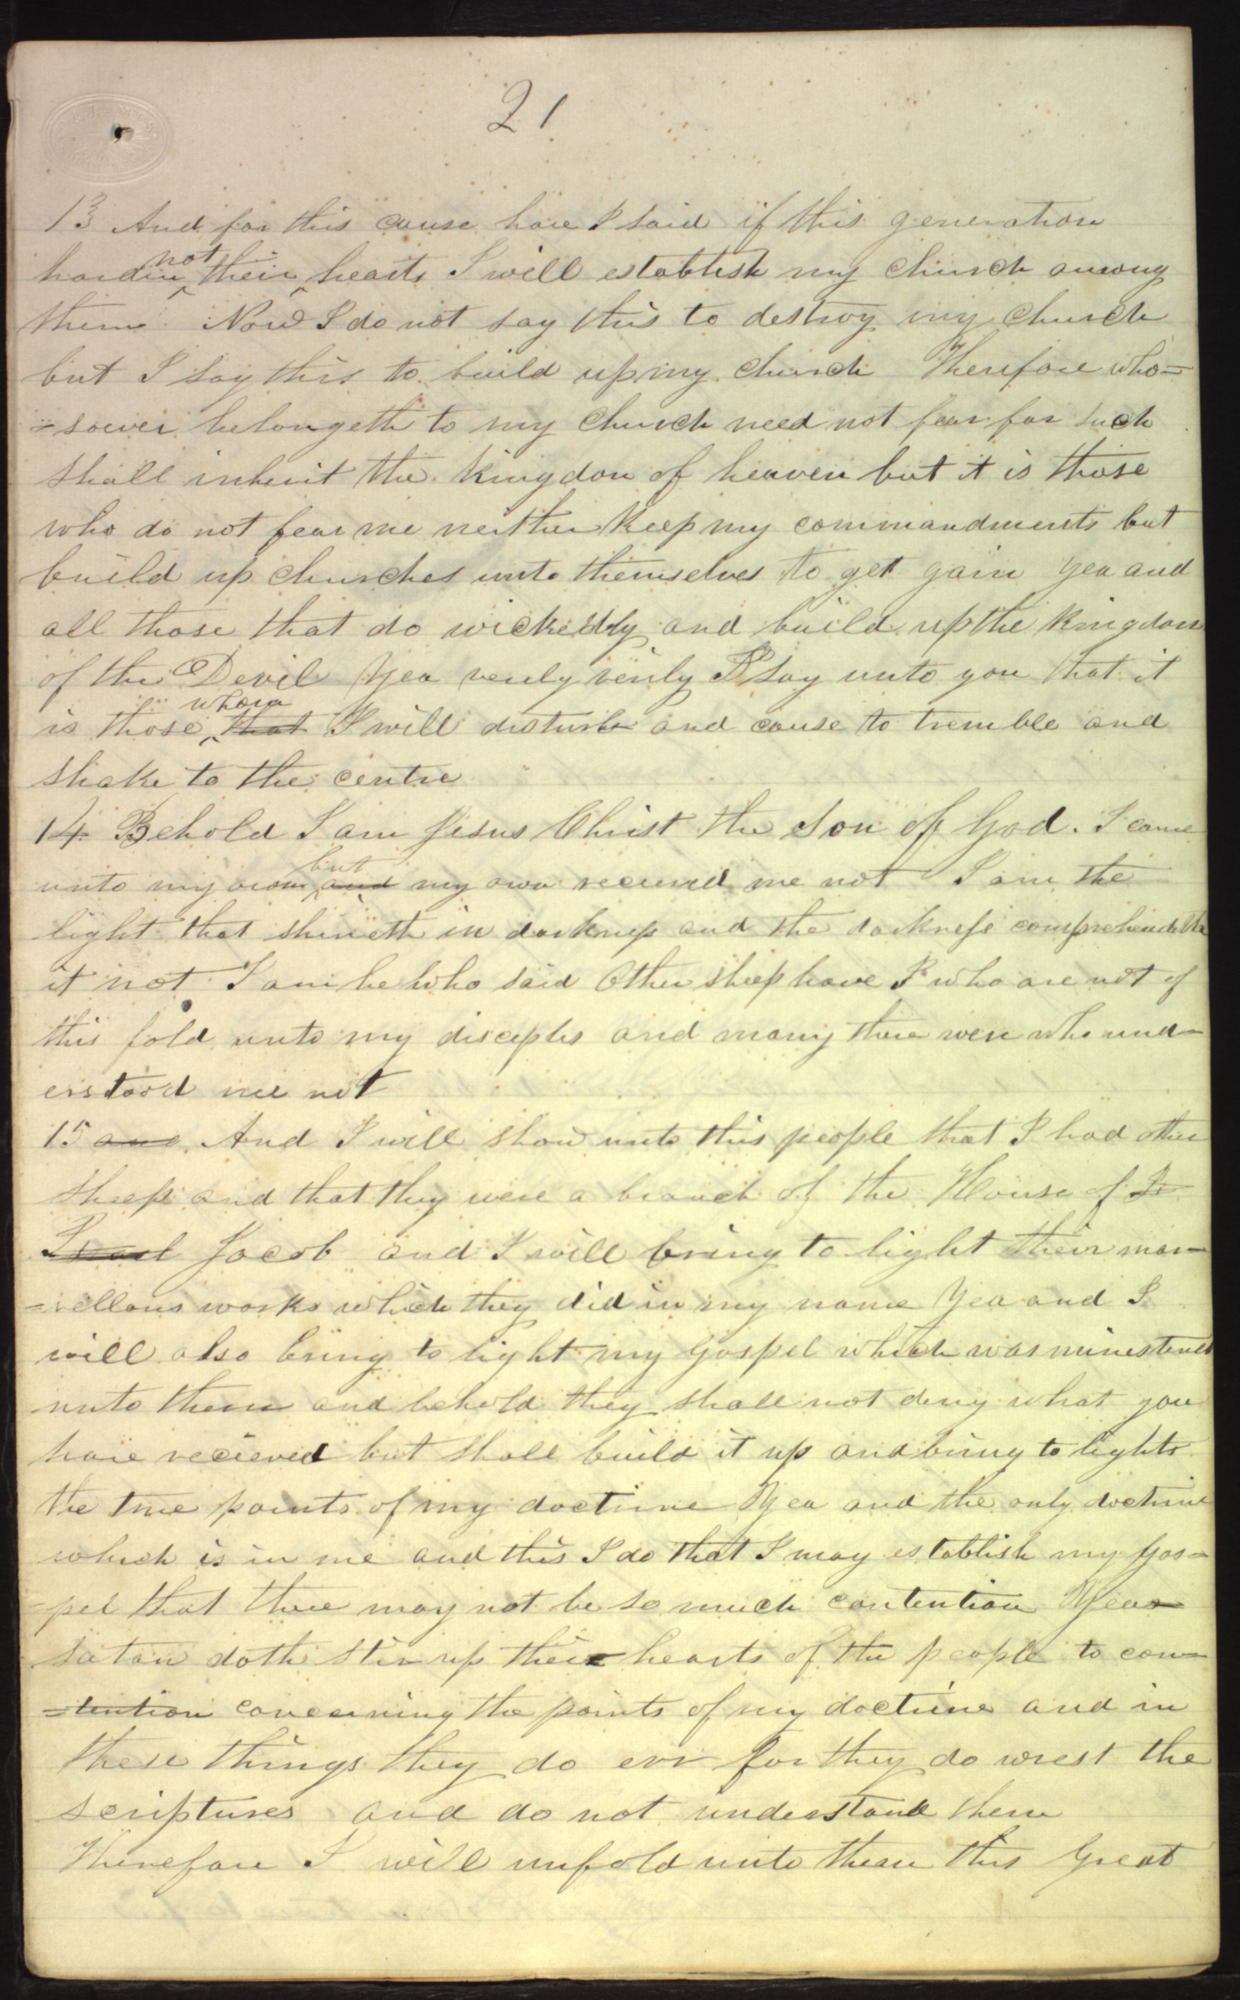 21
13 And for this cause have I said if this generation
harden not their hearts I will establish my church among
them Now I do not say this to destroy my church
but I say this to build up my church Therefore who=
=soever belongeth to my church need not fear for such
shall inherit the kingdom of heaven but it is those
who do not fear me neither keep my commandments but
build up churches unto themselves to get gain yea and
all those that do wickedly and build up the kingdom
of the Devil Yea verily verily I say unto you that it
is those whom that I will disturb and cause to tremble and
shake to the centre
14 Behold I am Jesus Christ the Son of God. I came
unto my own but and my own recieved me not I am the
light that shineth in darkness and the darkness comprehendeth
it not I am he who said Other sheep have I who are not of
this fold unto my disciples and many there were who und=
erstood me not
15 And I will show unto this people that I had other
sheep and that they were a branch of the House of Is
Israel Jacob and I will bring to light their mar=
=vellous works which they did in my name Yea and I
will also bring to light my gospel which was minestered
unto them and behold they shall not deny what you
have recieved but shall build it up and bring to light
the true points of my doctrine Yea and the only doctrine
which is in me and this I do that I may establish my gos=
=pel that there may not be so much contention Yea
satan doth stir up their hearts of the people to con=
=tention concerning the points of my doctrine and in
these things they do err for they do wrest the
scriptures and do not understand them
Therefore I will unfold unto them this great